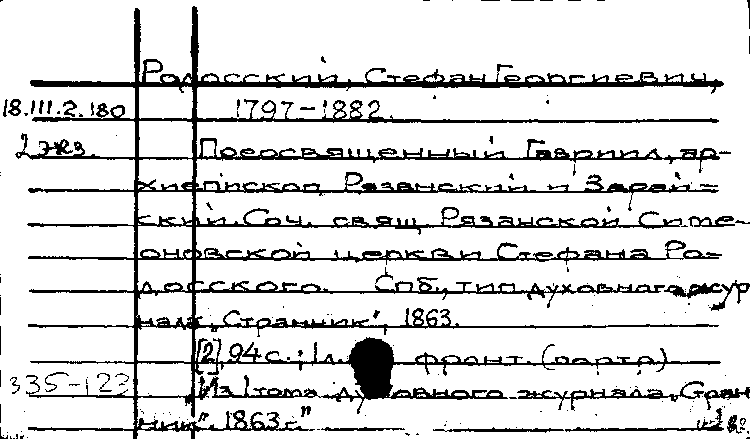 Родосский, Стефан Георгиевич,
18.III.2.180 1797-1882.
2 экз. Преосвященный Гавриил, ар-
хиепископ Рязанский и Зарай=
ский. Соч. свящ. Рязанской Симе-
оновской церкви Стефана Ро=
досского. Спб., тип. духовного жур
нала „Странник", 1863.
[2], 94 с.; 1 л. фронт. (портр.)
335-123 „Из I тома духовного журнала „Стран
ник". 1863 г."